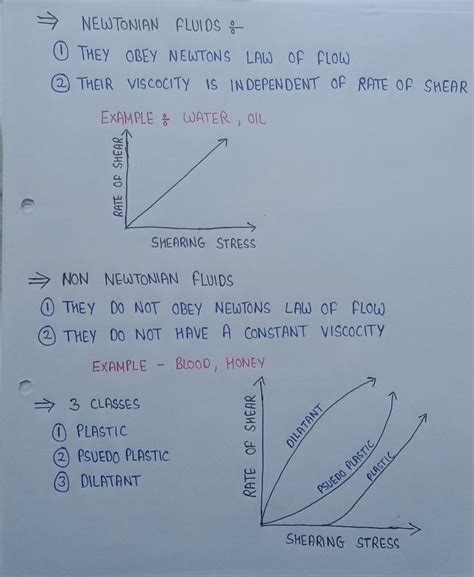 ⇒ NEWTONIAN FLUIDS ÷
① THEY OBEY NEWTONS LAW OF FLOW
② THEIR VISCOCITY IS INDEPENDENT OF RATE OF SHEAR
EXAMPLE ÷ WATER, OIL
RATE OF SHEAR
SHEARING STRESS
⇒ NON NEWTONIAN FLUIDS
① THEY DO NOT OBEY NEWTONS LAW OF FLOW
② THEY DO NOT HAVE A CONSTANT VISCOCITY
EXAMPLE - BLOOD, HONEY
⇒ 3 CLASSES
① PLASTIC
② PSUEDO PLASTIC
③ DILATANT
RATE OF SHEAR
DILATANT
PSUEDO PLASTIC
PLASTIC
SHEARING STRESS